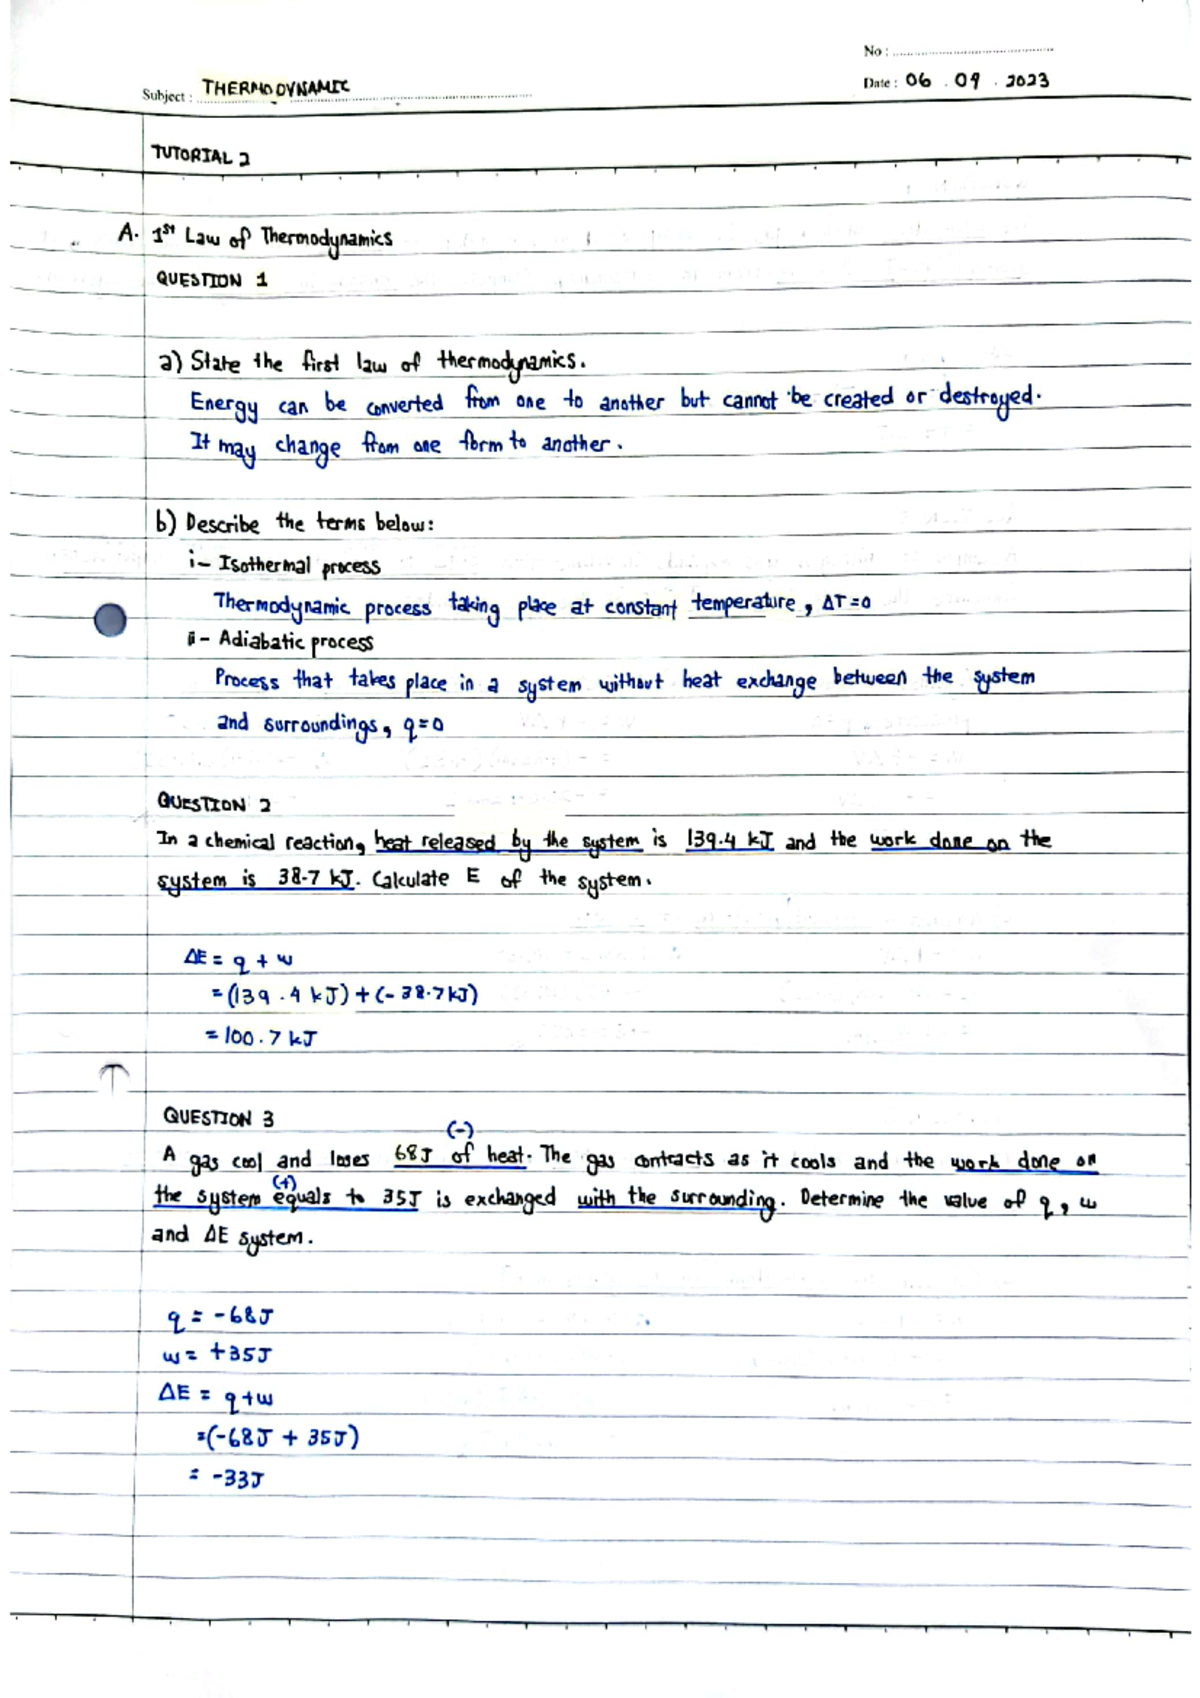 No :
Subject : THERMODYNAMIC
Date : 06 . 09 . 2023
TUTORIAL 2
A. 1st Law of Thermodynamics
QUESTION 1
a) State the first law of thermodynamics.
Energy can be converted from one to another but cannot be created or destroyed.
It may change from one form to another.
b) Describe the terms below:
i- Isothermal process
Thermodynamic process taking place at constant temperature, ΔT=0
ii- Adiabatic process
Process that takes place in a system without heat exchange between the system
and surroundings, q=0
QUESTION 2
In a chemical reaction, heat released by the system is 139.4 kJ and the work done on the
system is 38.7 kJ. Calculate E of the system.
ΔE = q + w
= (139.4 kJ) + (-38.7 kJ)
= 100.7 kJ
QUESTION 3
(-)
A gas cool and loses 68J of heat. The gas contracts as it cools and the work done on
(+)
the system equals to 35J is exchanged with the surrounding. Determine the value of q, w
and ΔE system.
q = -68J
w = +35J
ΔE = q+w
=(-68J + 35J)
= -33J